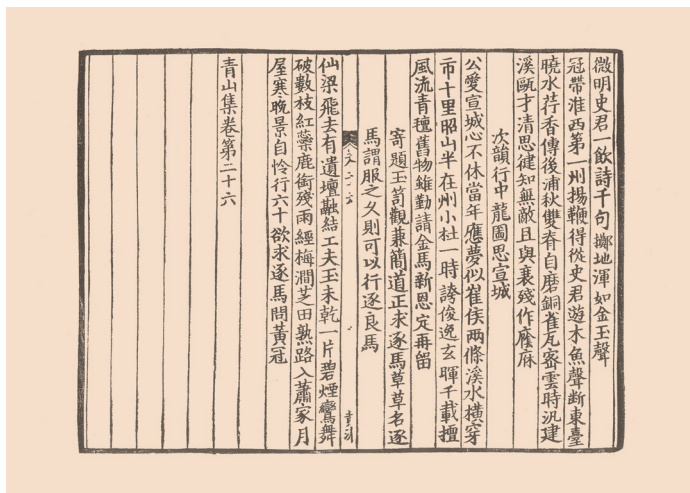 微明史君一飲詩千句擲地渾如金玉聲
冠帶淮西第一州揚鞭得從史君遊木魚聲断東臺
曉水荇香傳後浦秋雙脊自磨銅雀瓦宻雲時汎建
溪甌才清思健知無敵且與衰殘作麼麻
次韻行中龍圖思宣城
公愛宣城心不休當年應夢似崔侯两條溪水横穿
市十里昭山半在州小杜一時誇俊逸玄暉千載擅
風流青氊舊物雖勤請金馬新恩定再留
寄題玉笥觀兼簡道正求逐馬草草名逐
馬謂服之久則可以行逐良馬
仙梁飛去有遺壇融結工夫玉未乾一片碧煙鸞舞
破數枝紅蘂鹿銜殘雨經梅澗芝田熟路入蕭家月
屋寒晚景自怜行六十欲求逐馬問黃冠
青山集卷第二十六